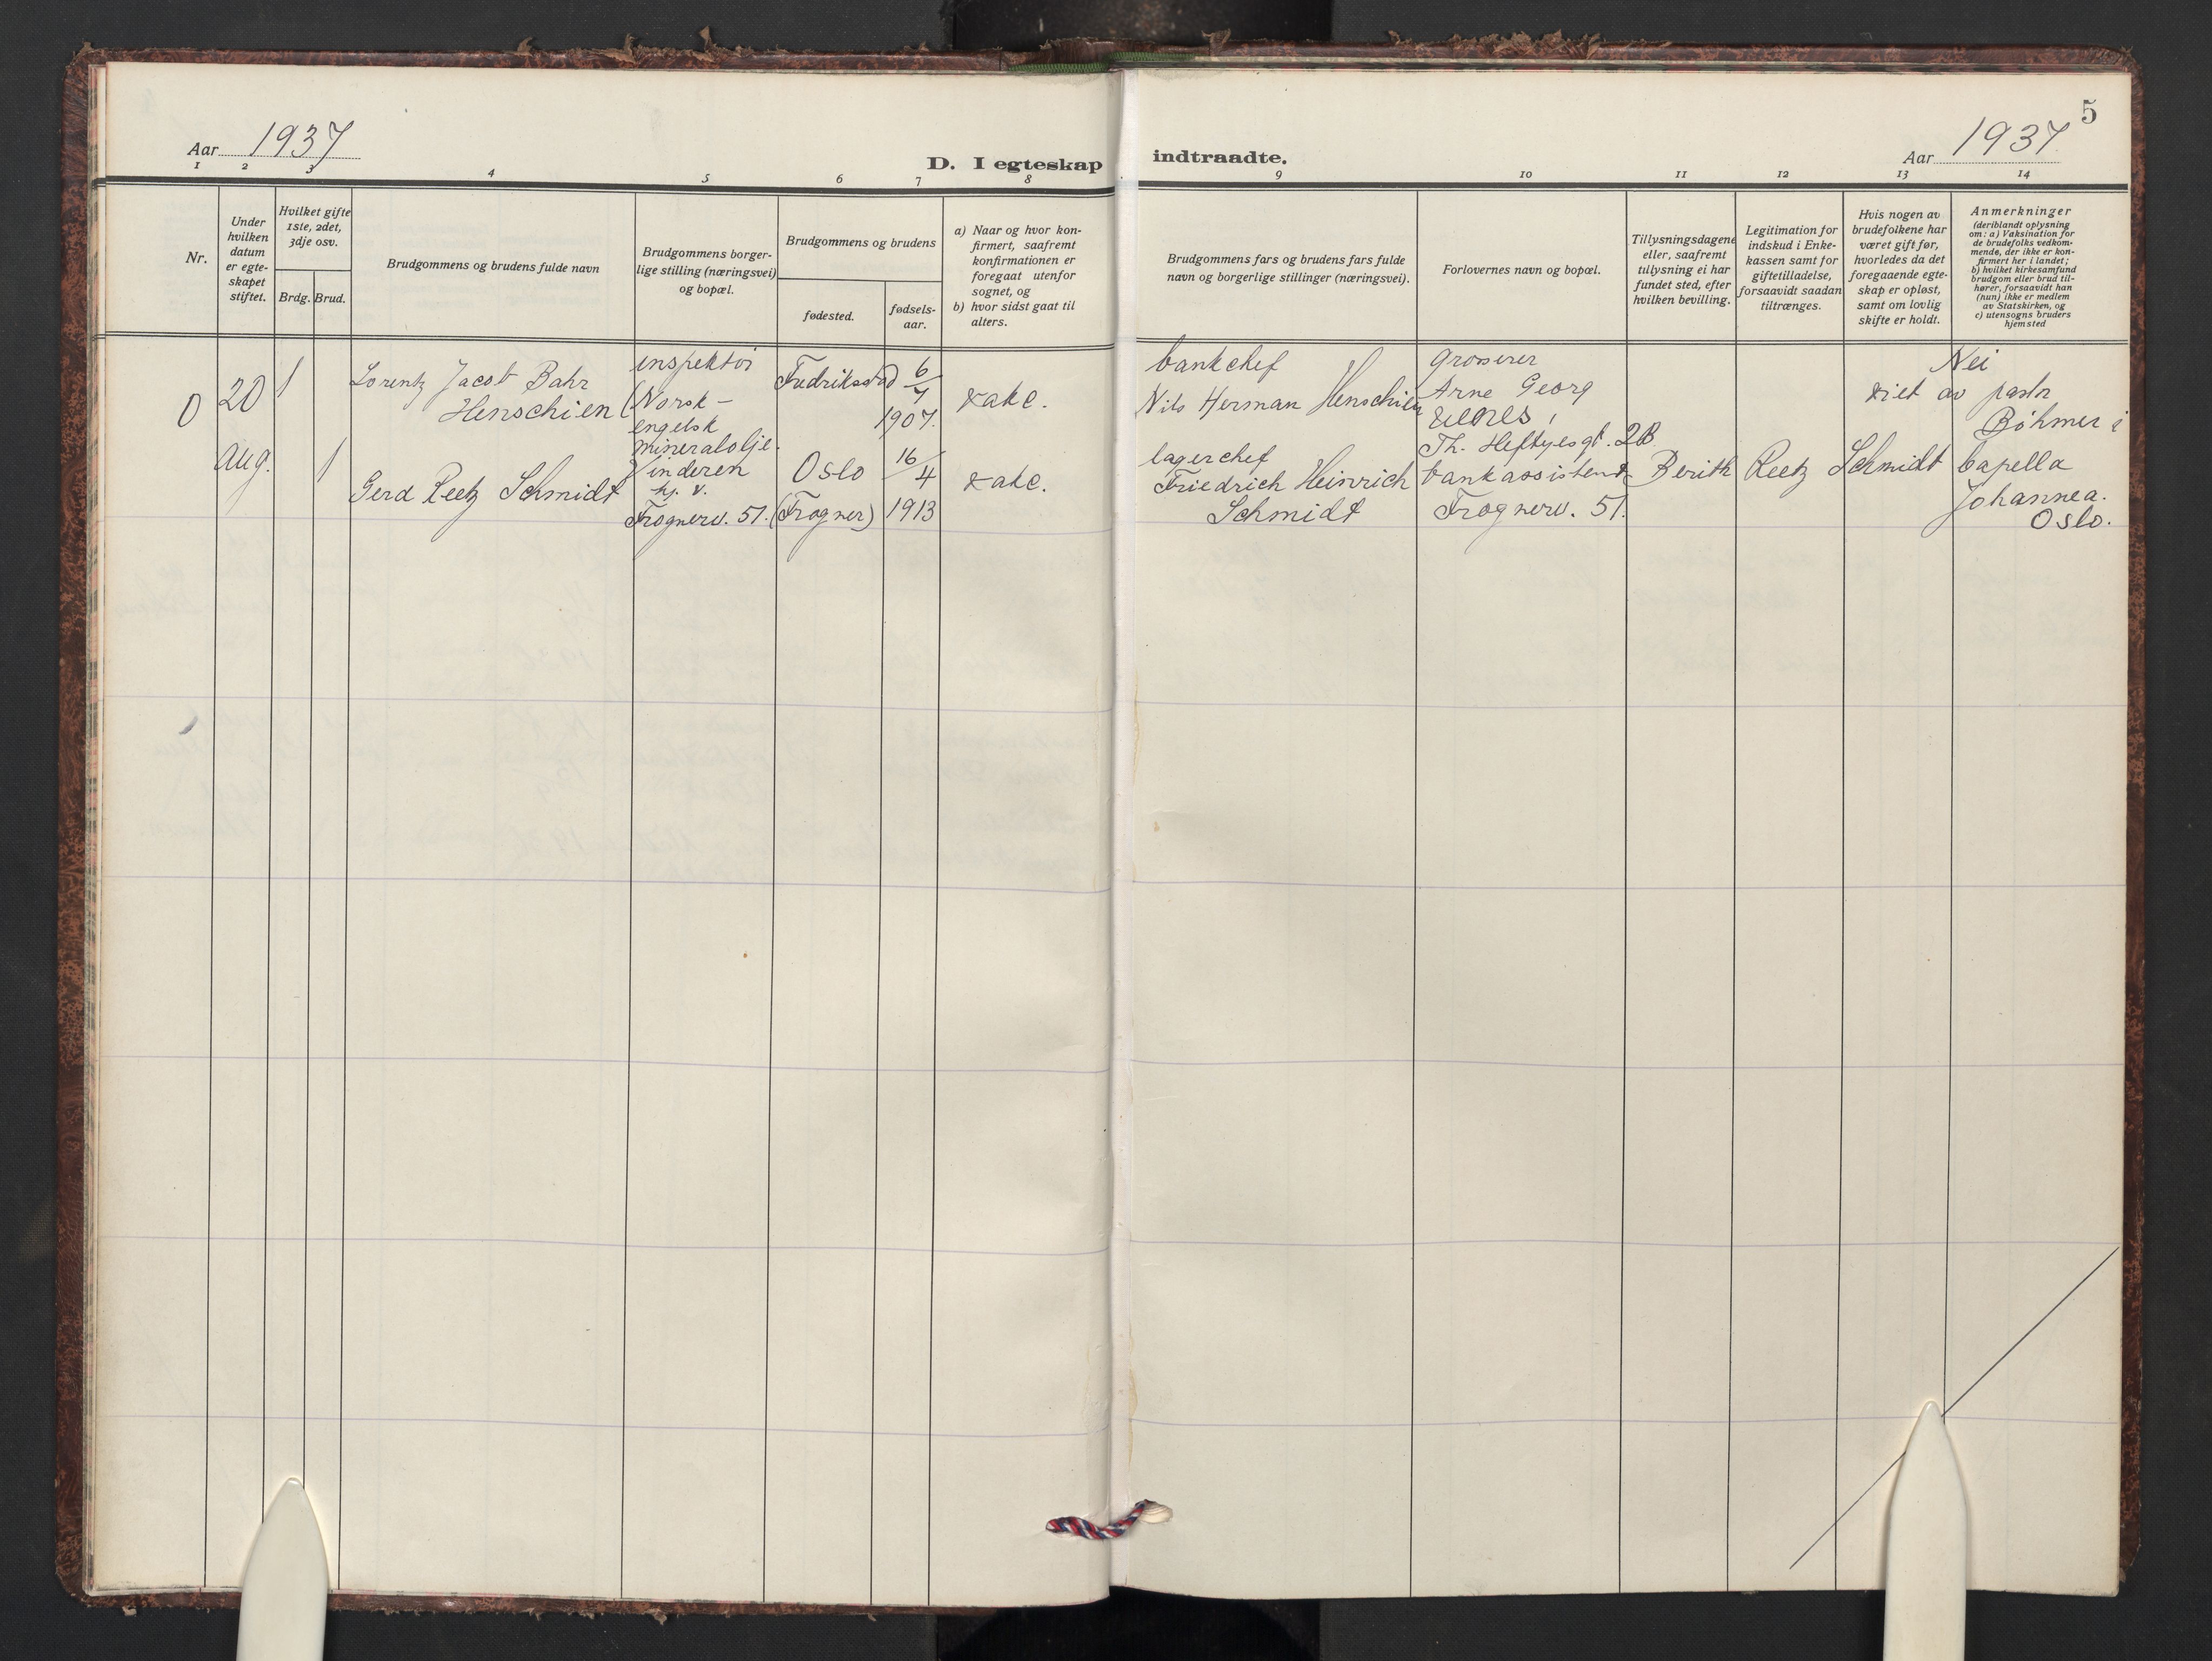 5
Aar 1937
D. I egteskap indtraadte.
Aar 1937
1 2 3 4 5 6 7 8 9 10 11 12 13 14
Nr.
Under
hvilken
datum
er egte-
skapet
stiftet.
Hvilket gifte
1ste, 2det,
3dje osv.
Brdg. Brud.
Brudgommens og brudens fulde navn
Brudgommens borger-
lige stilling (næringsvei)
og bopæl.
Brudgommens og brudens
fødested.
fødsels-
aar.
a) Naar og hvor kon-
firmert, saafremt
konfirmationen er
foregaat utenfor
sognet, og
b) hvor sidst gaat til
alters.
Brudgommens fars og brudens fars fulde
navn og borgerlige stillinger (næringsvei).
Forlovernes navn og bopæl.
Tillysningsdagene
eller, saafremt
tillysning ei har
fundet sted, efter
hvilken bevilling.
Legitimation for
indskud i Enke-
kassen samt for
giftetilladelse,
forsaavidt saadan
tiltrænges.
Hvis nogen av
brudefolkene har
været gift før,
hvorledes da det
foregaaende egte-
skap er opløst,
samt om lovlig
skifte er holdt.
Anmerkninger
(deriblandt oplysning
om: a) Vaksination for
de brudefolks vedkom-
mende, der ikke er kon-
firmert her i landet;
b) hvilket kirkesamfund
brudgom eller brud til-
hører, forsaavidt han
(hun) ikke er medlem
av Statskirken, og
c) utensogns bruders
hjemsted
0
20
aug.
1
1
Lorentz Jacob Bahr
Henschien
Gerd Reetz Schmidt
inspektør
(Norsk-
engelsk
mineralolje.
Vinderen
hj. v.
Frognerv. 51.
Fredriksstad
Oslo
(Frogner)
6/7
1907.
16/4
1913
bankchef
Nils Herman Henschien
lagerchef
Friedrich Heinrich
Schmidt
grosserer
Arne Georg
Th. Heftyesgt. 2B
bankassistent Berith Reetz Schmidt
Frognerv. 51.
Nei
viet av pastr
Böhmer i
Capella
Johannea.
Oslo.